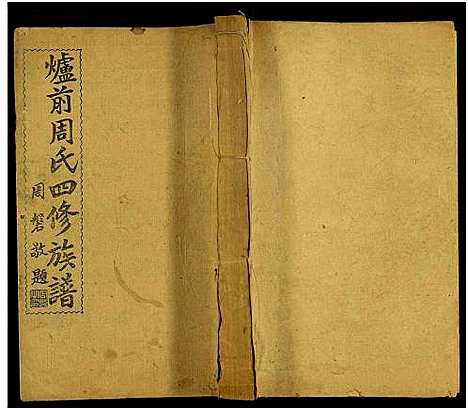 爐前周氏四修族譜
周磐敬題